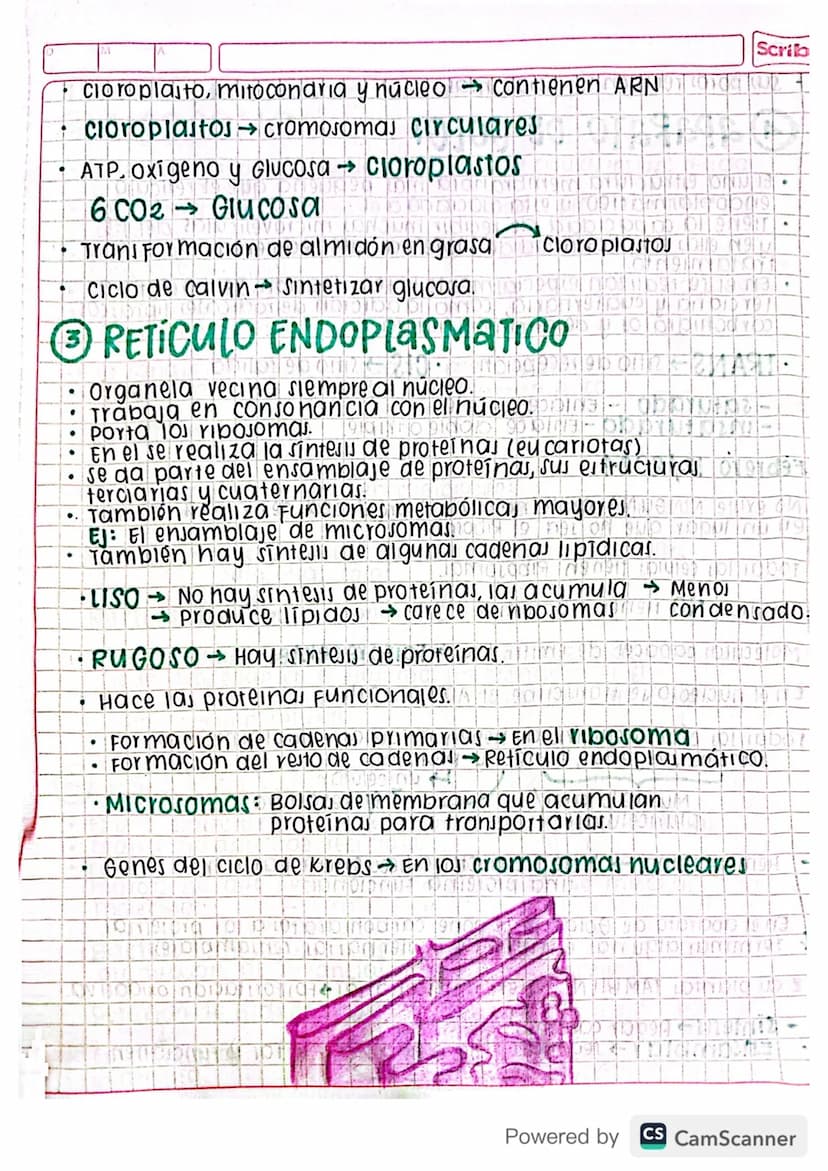 Scrib
• Cloroplasto, mitocondria y núcleo → contienen ARN
• Cloroplastos → cromosomas circulares
• ATP, oxígeno y Glucosa → cloroplastos
6 CO2 → Glucosa
• Transformación de almidón en grasa → cloroplastos
• Ciclo de calvin → Sintetizar glucosa.
③ RETÍCULO ENDOPLASMATICO
• Organela vecina siempre al núcleo.
• Trabaja en consonancia con el núcleo.
• Porta los ribosomas.
• En el se realiza la síntesis de proteínas (eucariotas)
• se da parte del ensamblaje de proteínas, sus estructuras
terciarias y cuaternarias.
•. También realiza Funciones metabólicas mayores.
Ej: El ensamblaje de microsomas.
• También hay síntesis de algunas cadenas lipídicas.
• LISO → No hay síntesis de proteínas, las acumula → Menos
→ produce lípidos → carece de ribosomas condensado.
• RUGOSO → Hay síntesis de proteínas.
• Hace las proteinas Funcionales.
• Formación de cadenas primarias → En el ribosoma
• Formación del resto de cadenas → Retículo endoplasmático.
• Microsomas: Bolsas de membrana que acumulan
proteínas para transportarlas.
• Genes del ciclo de Krebs → En los cromosomas nucleares
Powered by CS CamScanner